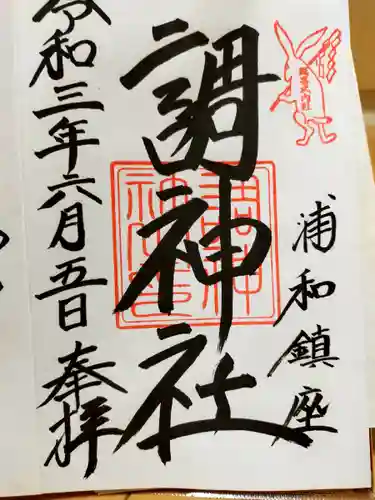 浦和鎮座
調神社
令和三年六月五日奉拝